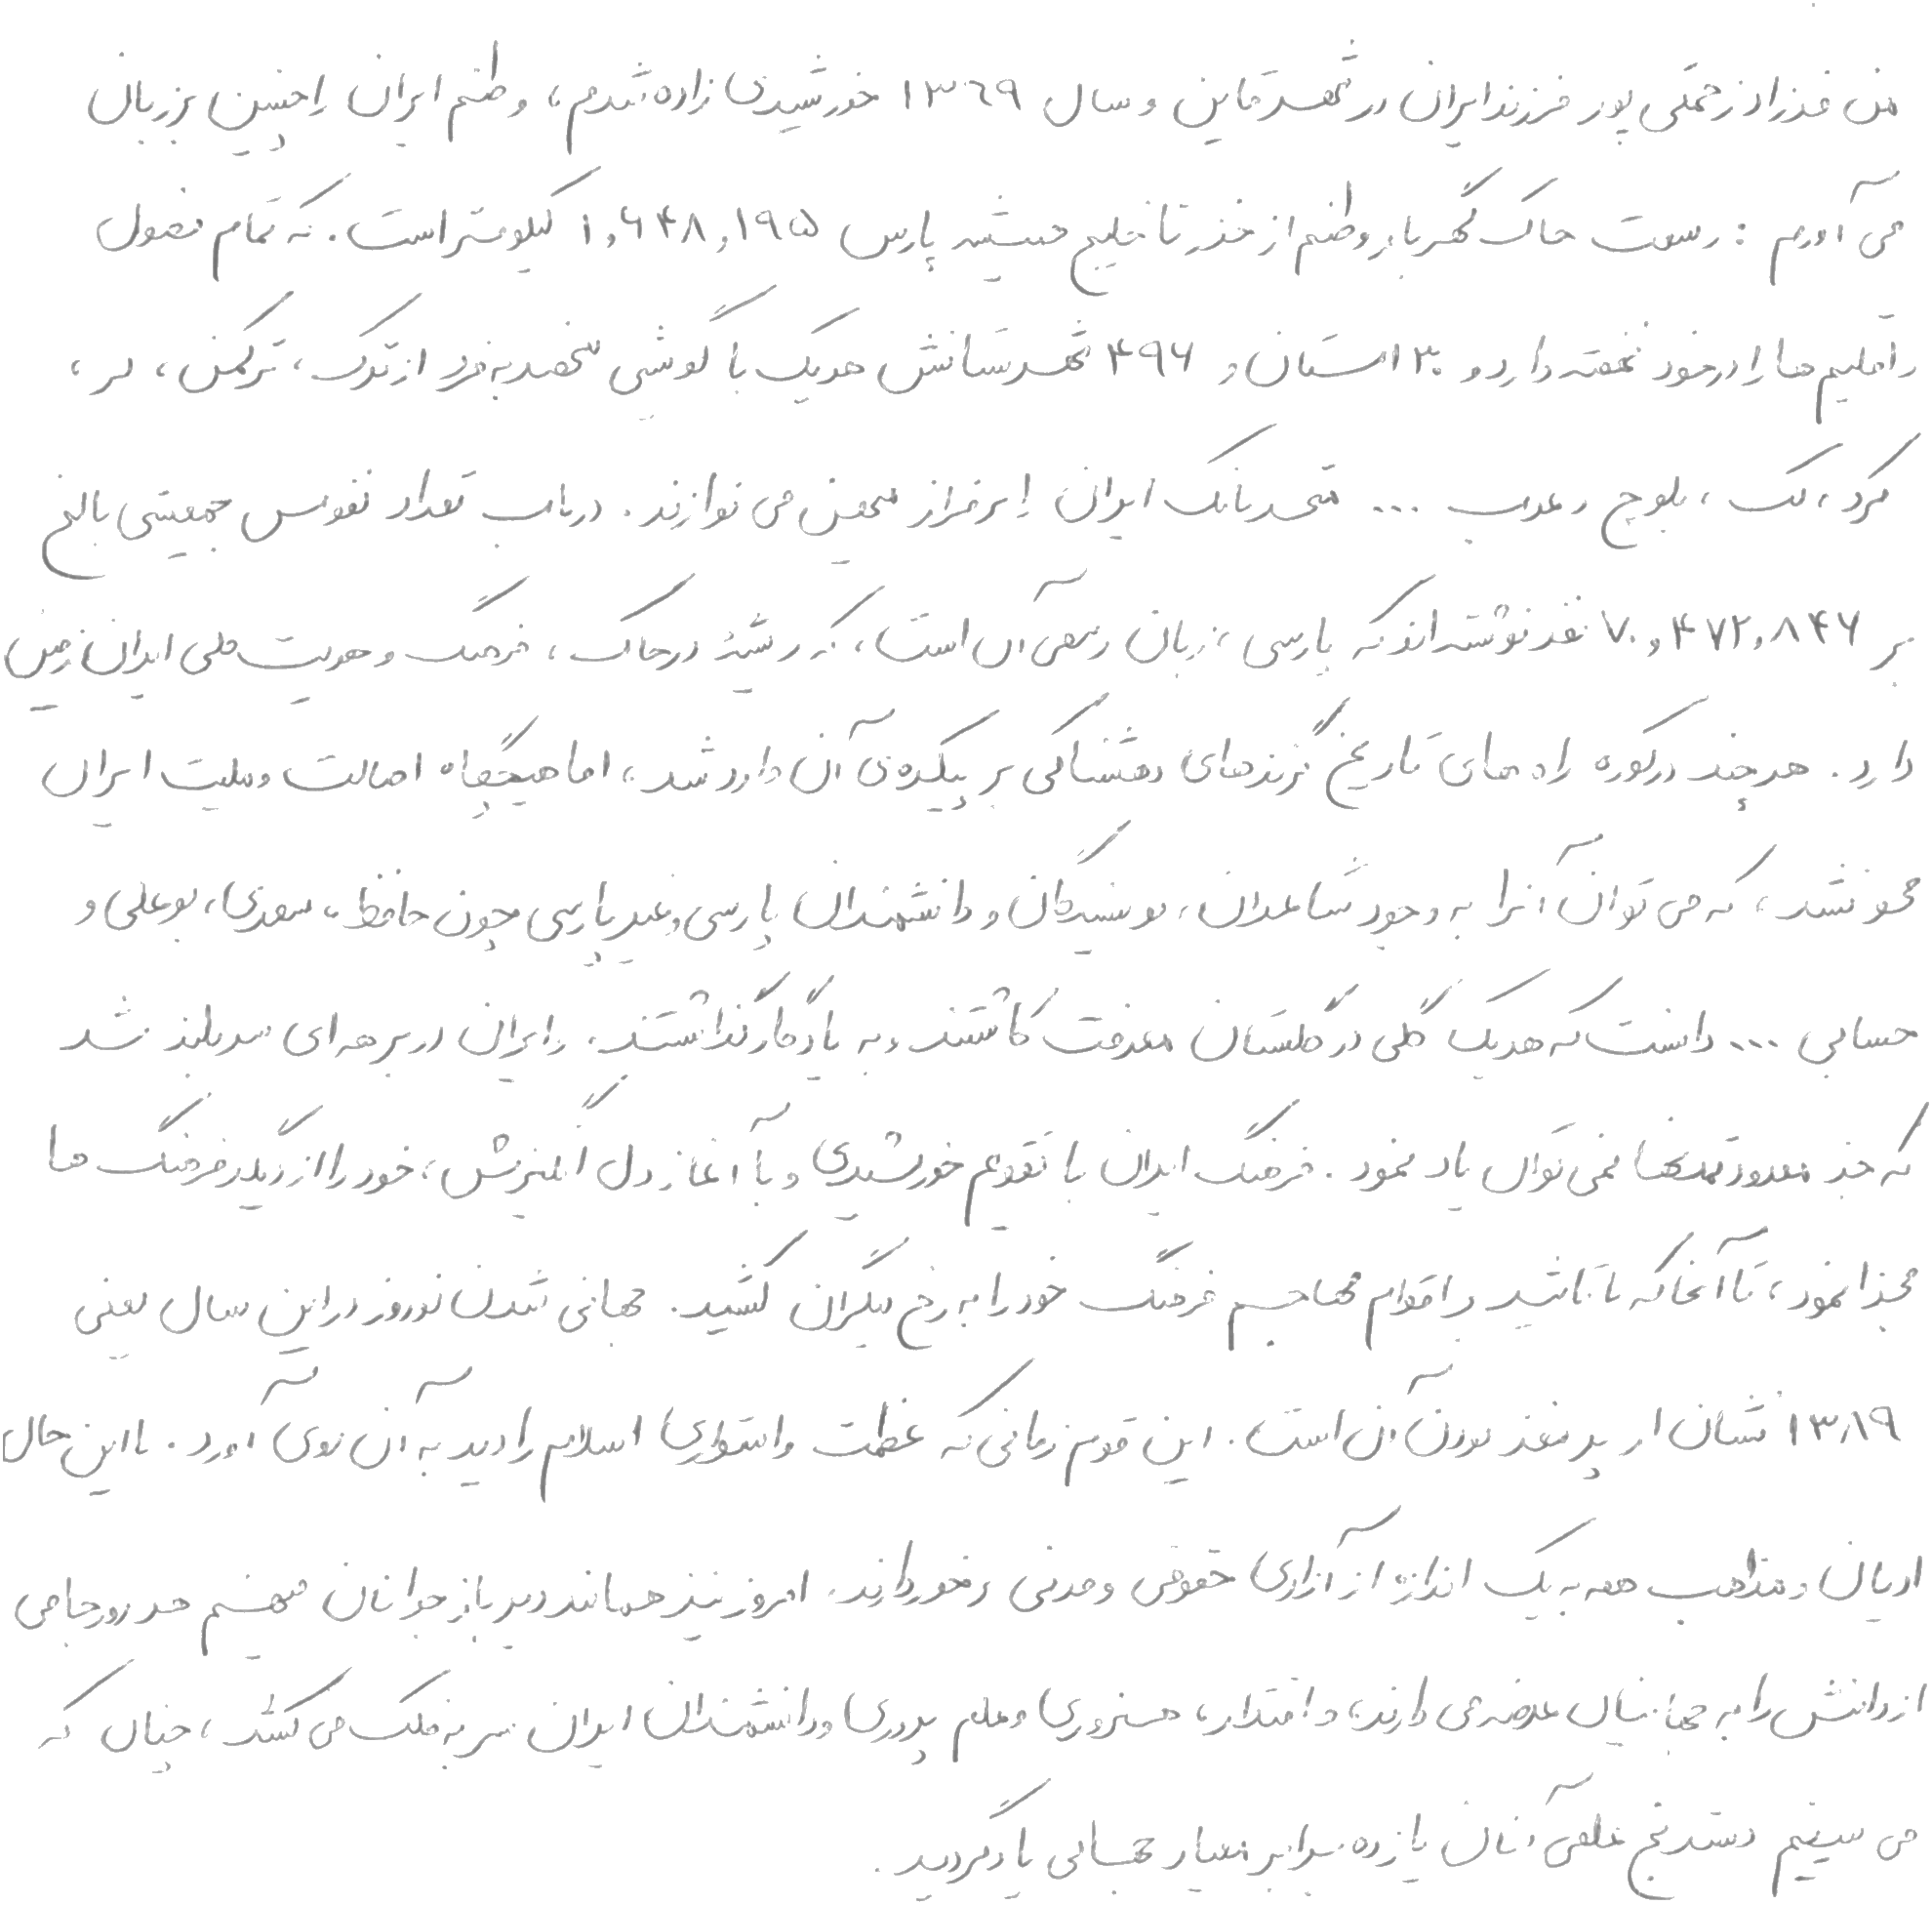 من فرزاد زحمتی پور فرزند ایران در شهر قاین و سال ۱۳۶۹ خورشیدی زاده شدم، وطنم ایران را چنین بر زبان
می آورم : وسعت خاک گهربار وطنم از خزر تا خلیج همیشه پارس ۱,۶۴۸,۱۹۵ کیلومتر است. که تمام فصول
و اقلیم ها را در خود نهفته دارد و ۳۰ استان و ۴۹۶ شهرستانش هریک با گویشی منحصر به فرد از ترک، ترکمن، لر،
کرد، لک، بلوچ و عرب ... متحد بانگ ایران را بر فراز میهن می نوازند. در باب تعداد نفوس جمعیتی بالغ
بر ۷۰,۴۷۲,۸۴۶ نفر نوشته اند که پارسی، زبان رسمی آن است، که ریشه در خاک، فرهنگ و هویت ملی ایران زمین
دارد. هر چند در کوره راه های تاریخ گزندهای دهشتناکی بر پیکره ی آن وارد شد، اما هیچگاه اصالت و ملیت ایران
محو نشد، که می توان آنرا به وجود شاعران، نویسندگان و دانشمندان پارسی و غیر پارسی چون حافظ، سعدی، بوعلی و
حسابی ... دانست که هریک گلی در گلستان معرفت کاشتند و به یادگار گذاشتند. و ایران در برهه ای سربلند شد
که جز معدود تمدنها نمی توان یاد نمود. فرهنگ ایران با تقویم خورشیدی و با آغاز دل انگیزش، خود را از دیگر فرهنگ ها
مجزا نمود، تا آنجا که با تاثیر بر اقوام مهاجم فرهنگ خود را به رخ دیگران کشید. جهانی شدن نوروز در این سال یعنی
۱۳۸۹ نشان از پر مغز بودن آن است. این قوم زمانی که عظمت و استواری اسلام را دید به آن روی آورد. با این حال
ادیان و مذاهب همه به یک اندازه از آزادی حقوقی و مدنی برخوردارند. امروز نیز همانند دیر باز جوانان میهنم هر روز جامی
از دانش را به جهانیان عرضه می دارند، و اقتدار، هنروری و علم پروری و دانشمندان ایران سر به فلک می کشد، چنان که
می بینیم دسترنج علمی آنان یازده برابر معیار جهانی یاد گردید.